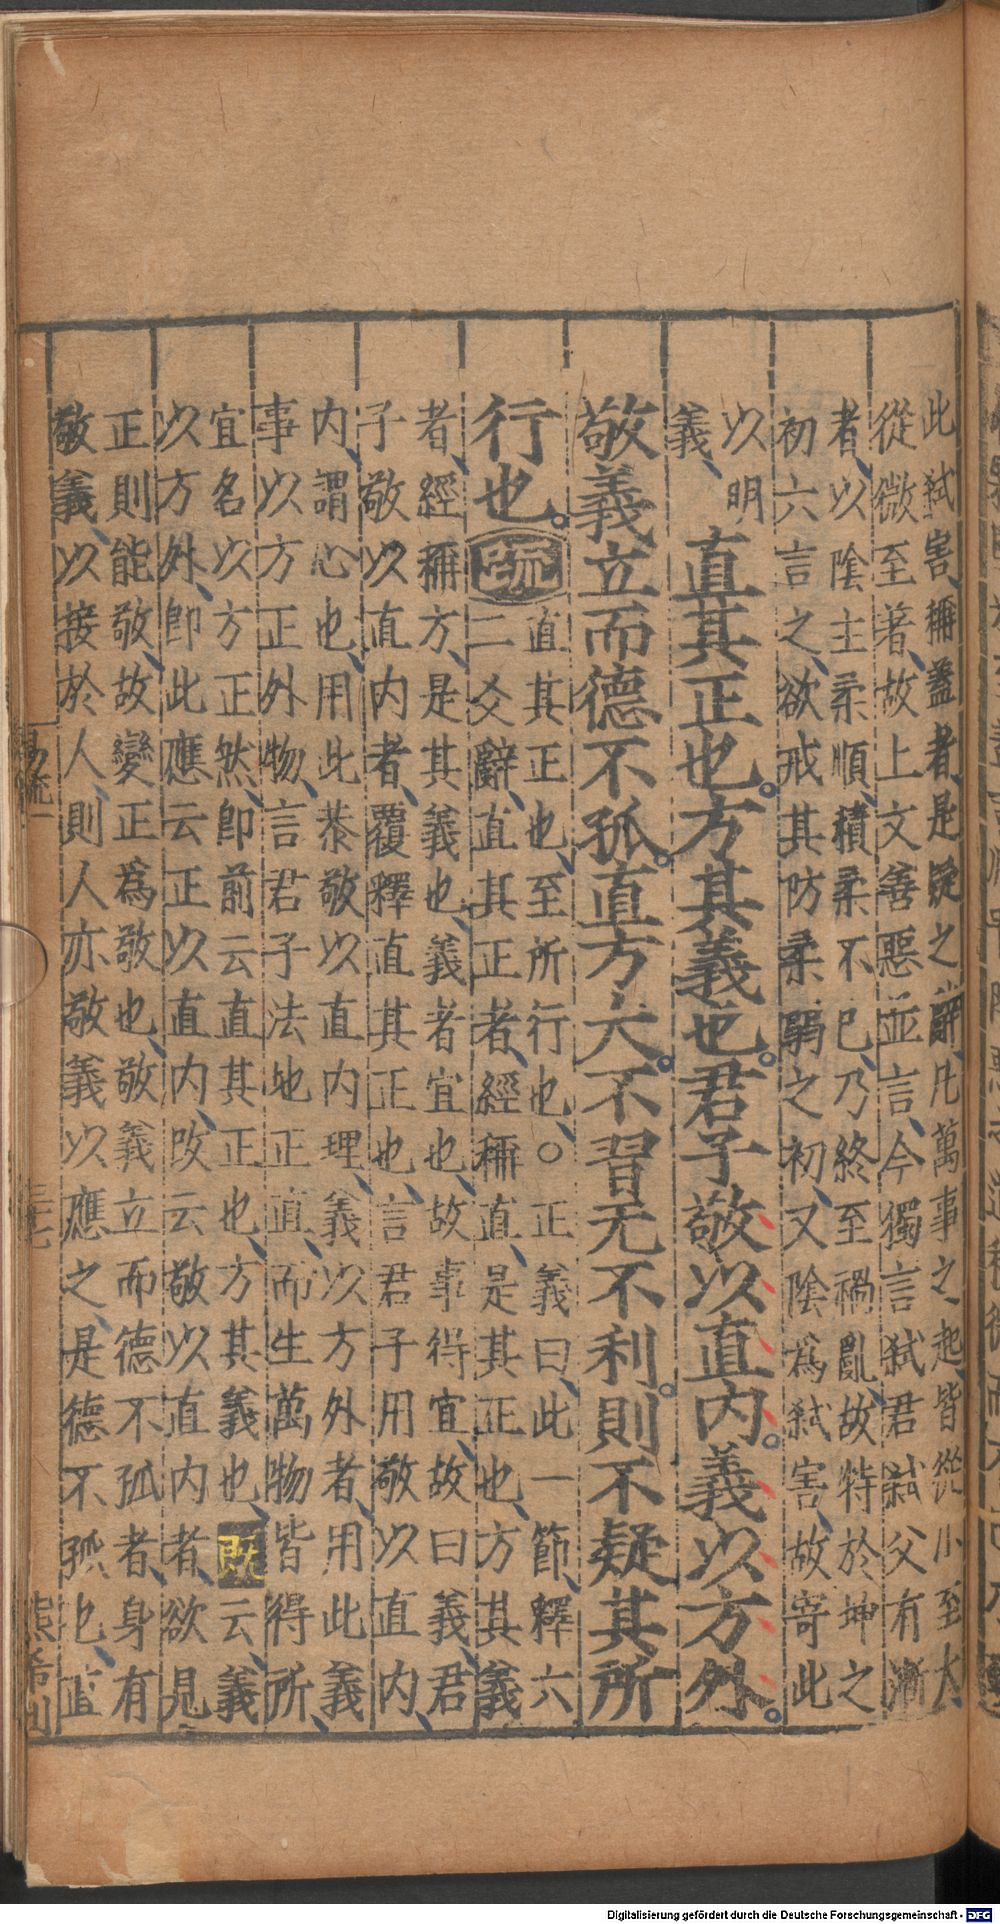 此弑害稱蓋者是疑之辭凡萬事之起皆從小至大
從微至著故上文善惡並言今獨言弑君弑父有漸
者以陰主柔順積柔不已乃終至禍亂故特於坤之
初六言之欲戒其防柔弱之初又陰爲弑害故寄此
以明
義
直其正也方其義也君子敬以直内義以方外
敬義立而德不孤直方大不習无不利則不疑其所
行也
疏
直其正也至所行也○正義曰此一節釋六
二爻辭直其正者經稱直是其正也方其義
者經稱方是其義也義者宜也故事得宜故曰義君
子敬以直内者覆釋直其正也言君子用敬以直内
内謂心也用此恭敬以直内理義以方外者用此義
事以方正外物言君子法地正直而生萬物皆得所
宜名以方正然即前云直其正也方其義也既云義
以方外即此應云正以直内改云敬以直内者欲見
正則能敬故變正爲敬也敬義立而德不孤者身有
敬義以接於人則人亦敬義以應之是德不孤也直
易疏一
Digitalisierung gefördert durch die Deutsche Forschungsgemeinschaft - DFG